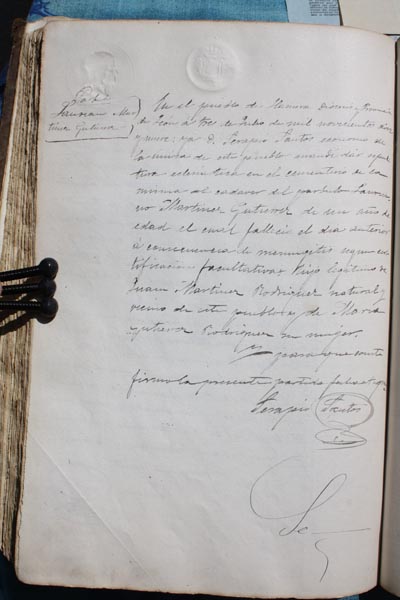 Laurean Mar-
tinez Gutierrez
En el pueblo de
de León á tres de Julio de mil novecientos diez
y nueve: yo D. Serapio Santos ecónomo de
la misma de este pueblo mandé dar sepul-
tura eclesiástica en el cementerio de la
misma al cadaver del párbulo
Martinez Gutierrez de un año de
edad el cual falleció el dia anterior
á consecuencia de meningitis segun cer-
tificación facultativa: Hijo legitimo de
Juan Martinez Rodriguez natural y
vecino de este pueblo y de Maria
Gutierrez Rodriguez su mujer.
Y para que conste
firmo la presente partida fecha
Serapio Santos